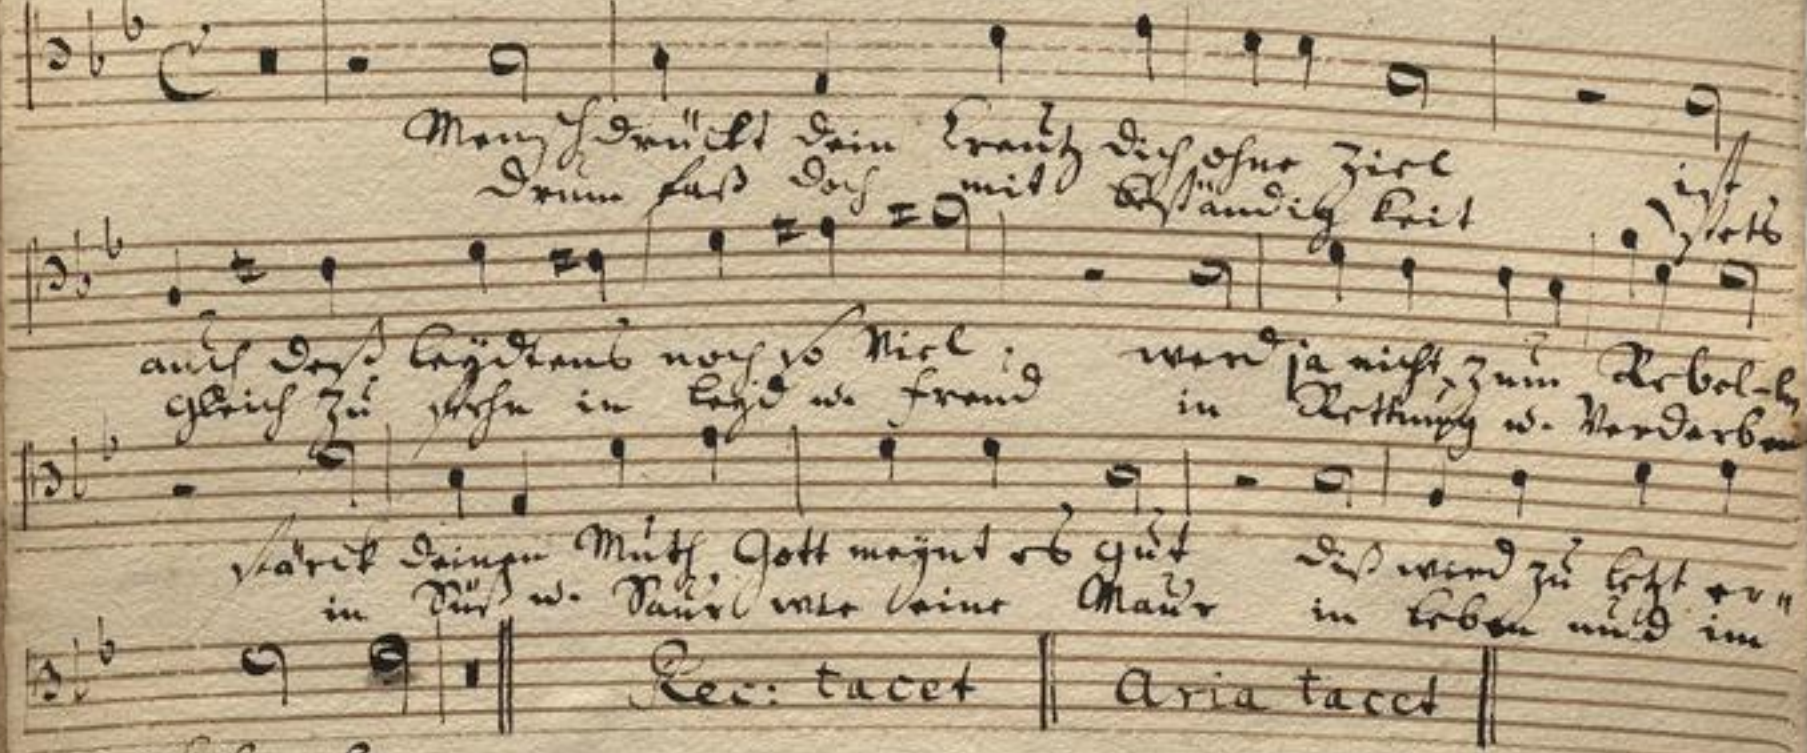 Mensch drückt dein Creutz dich ohne Ziel ist
Drum faß doch mit beständig keit stets
auch deß leydens noch so Viel. werd ja nicht zum Rebel-len
gleich zu stehn in leyd u. freud in Rettung u. Verderben
stärck deinen Muth Gott meynt es gut diß wird zu letzt er-
in Süß u. Saur wie eine Maur in leben und im
Rec: tacet Aria tacet